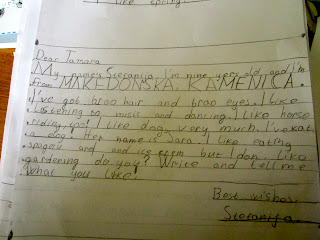 I like spring.
Dear Tamara
My name's Stefanija. I'm nine years old and I'm
from MAKEDONSKA KAMENICA.
I've got braо hair and brao eyes. I like
listening to music and dancing. I like horse
riding, too! I like dog very much. I've
a dog. Her name is Sara. I like eating
and and ice creem but I don, like
gardening do you? Write and tell me
what you like!
Best wishes,
Stefanija.